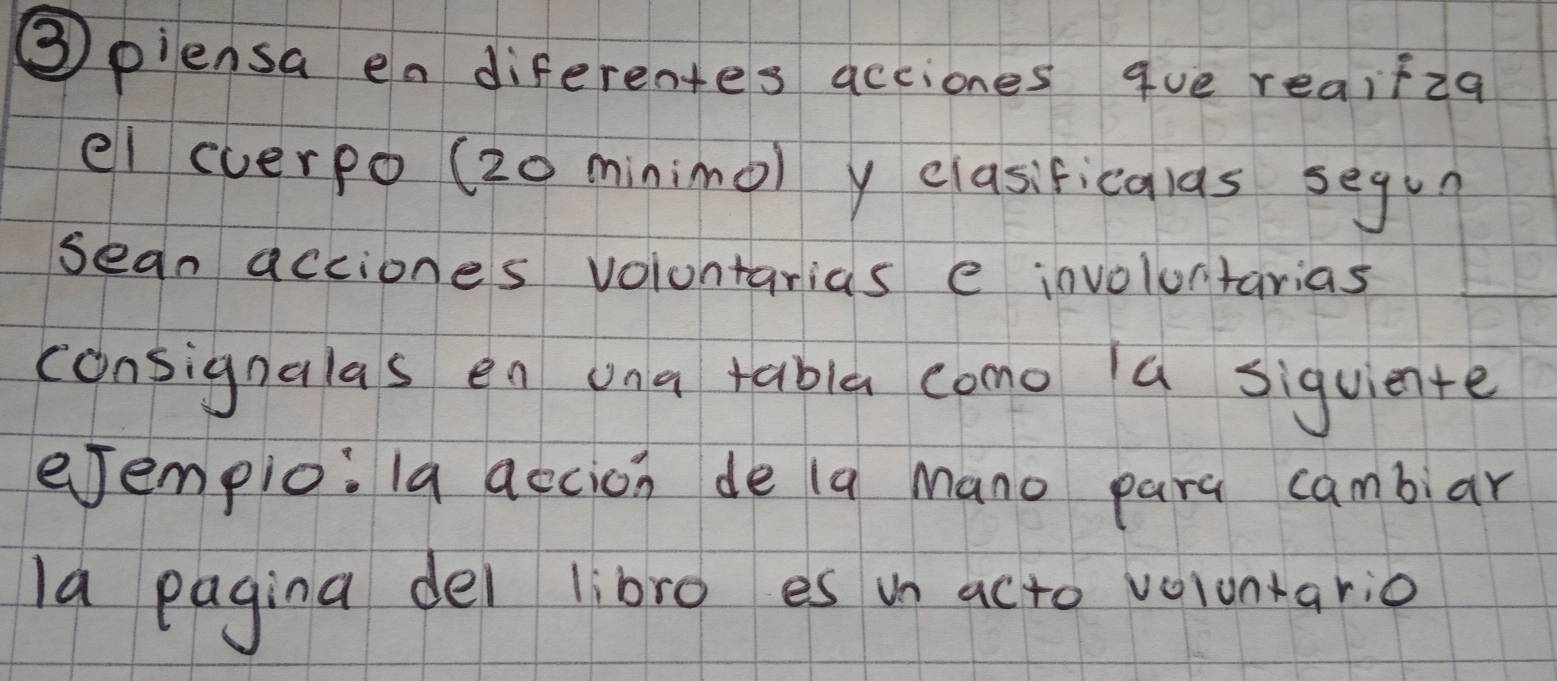 ③ piensa en diferentes acciones que reaifza
el cuerpo (20 minimo) y clasificalas segun
sean acciones voluntarias e involuntarias
consignalas en una tabla como la siguiente
eJemplo: la acción de la mano para cambiar
la pagina del libro es un acto voluntario